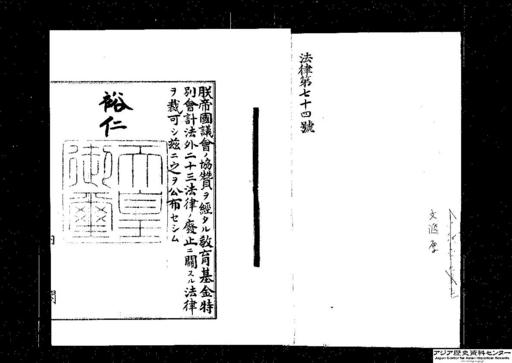 法律第七十四號
朕帝國議會ノ協贊ヲ經タル敎育基金特
別會計法外二十三法律ノ廢止ニ關スル法律
ヲ裁可シ玆ニ之ヲ公布セシム
裕仁
天皇
御璽
アジア歴史資料センター
Japan Center for Asian Historical Records